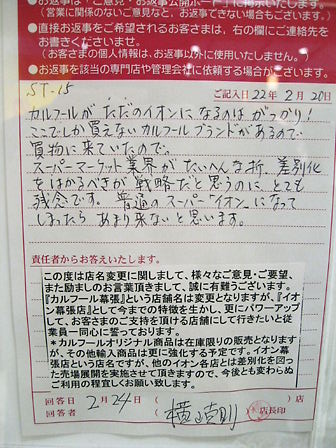 ■お返事は「ご意見・お返事公開ボード」に掲示いたします。
(営業に関係のないご意見など、お返事できない場合もございます。)
●直接お返事をご希望されるお客さまは、右の欄にご連絡先を
お書きくださいませ。
(お客さまの個人情報は、お返事以外に使用いたしません。)
●お返事を該当の専門店や管理会社に依頼する場合がございます。
ST-15
ご記入日 22年 2月 20日
カルフールがただのイオンになるのはがっかり!
ここでしか買えないカルフールブランドがあるので
買物に来ていたので。
スーパーマーケット業界がたいへんな折、差別化
をはかるべきが戦略だと思うのに、とても
残念です。普通のスーパー"イオン"になって
しまったらあまり来ないと思います。
責任者からお答えいたします。
この度は店名変更に関しまして、様々なご意見・ご要望、
また励ましのお言葉頂きまして、誠に有難うございます。
『カルフール幕張』という店舗名は変更となりますが、『イオン
幕張店』として今までの特徴を生かし、更にパワーアップ
して、お客さまのご支持を頂ける店舗にして行きたいと従
業員一同心に誓っております。
*カルフールオリジナル商品は在庫限りの販売となります
が、その他輸入商品は更に強化する予定です。イオン幕
張店という店名ですが、他のイオン各店とは差別化を図っ
た売場展開を実施させて頂きますので、今後とも変わらぬ
ご利用の程宜しくお願い致します。
店
回答日 2月24日
回答者 店長印